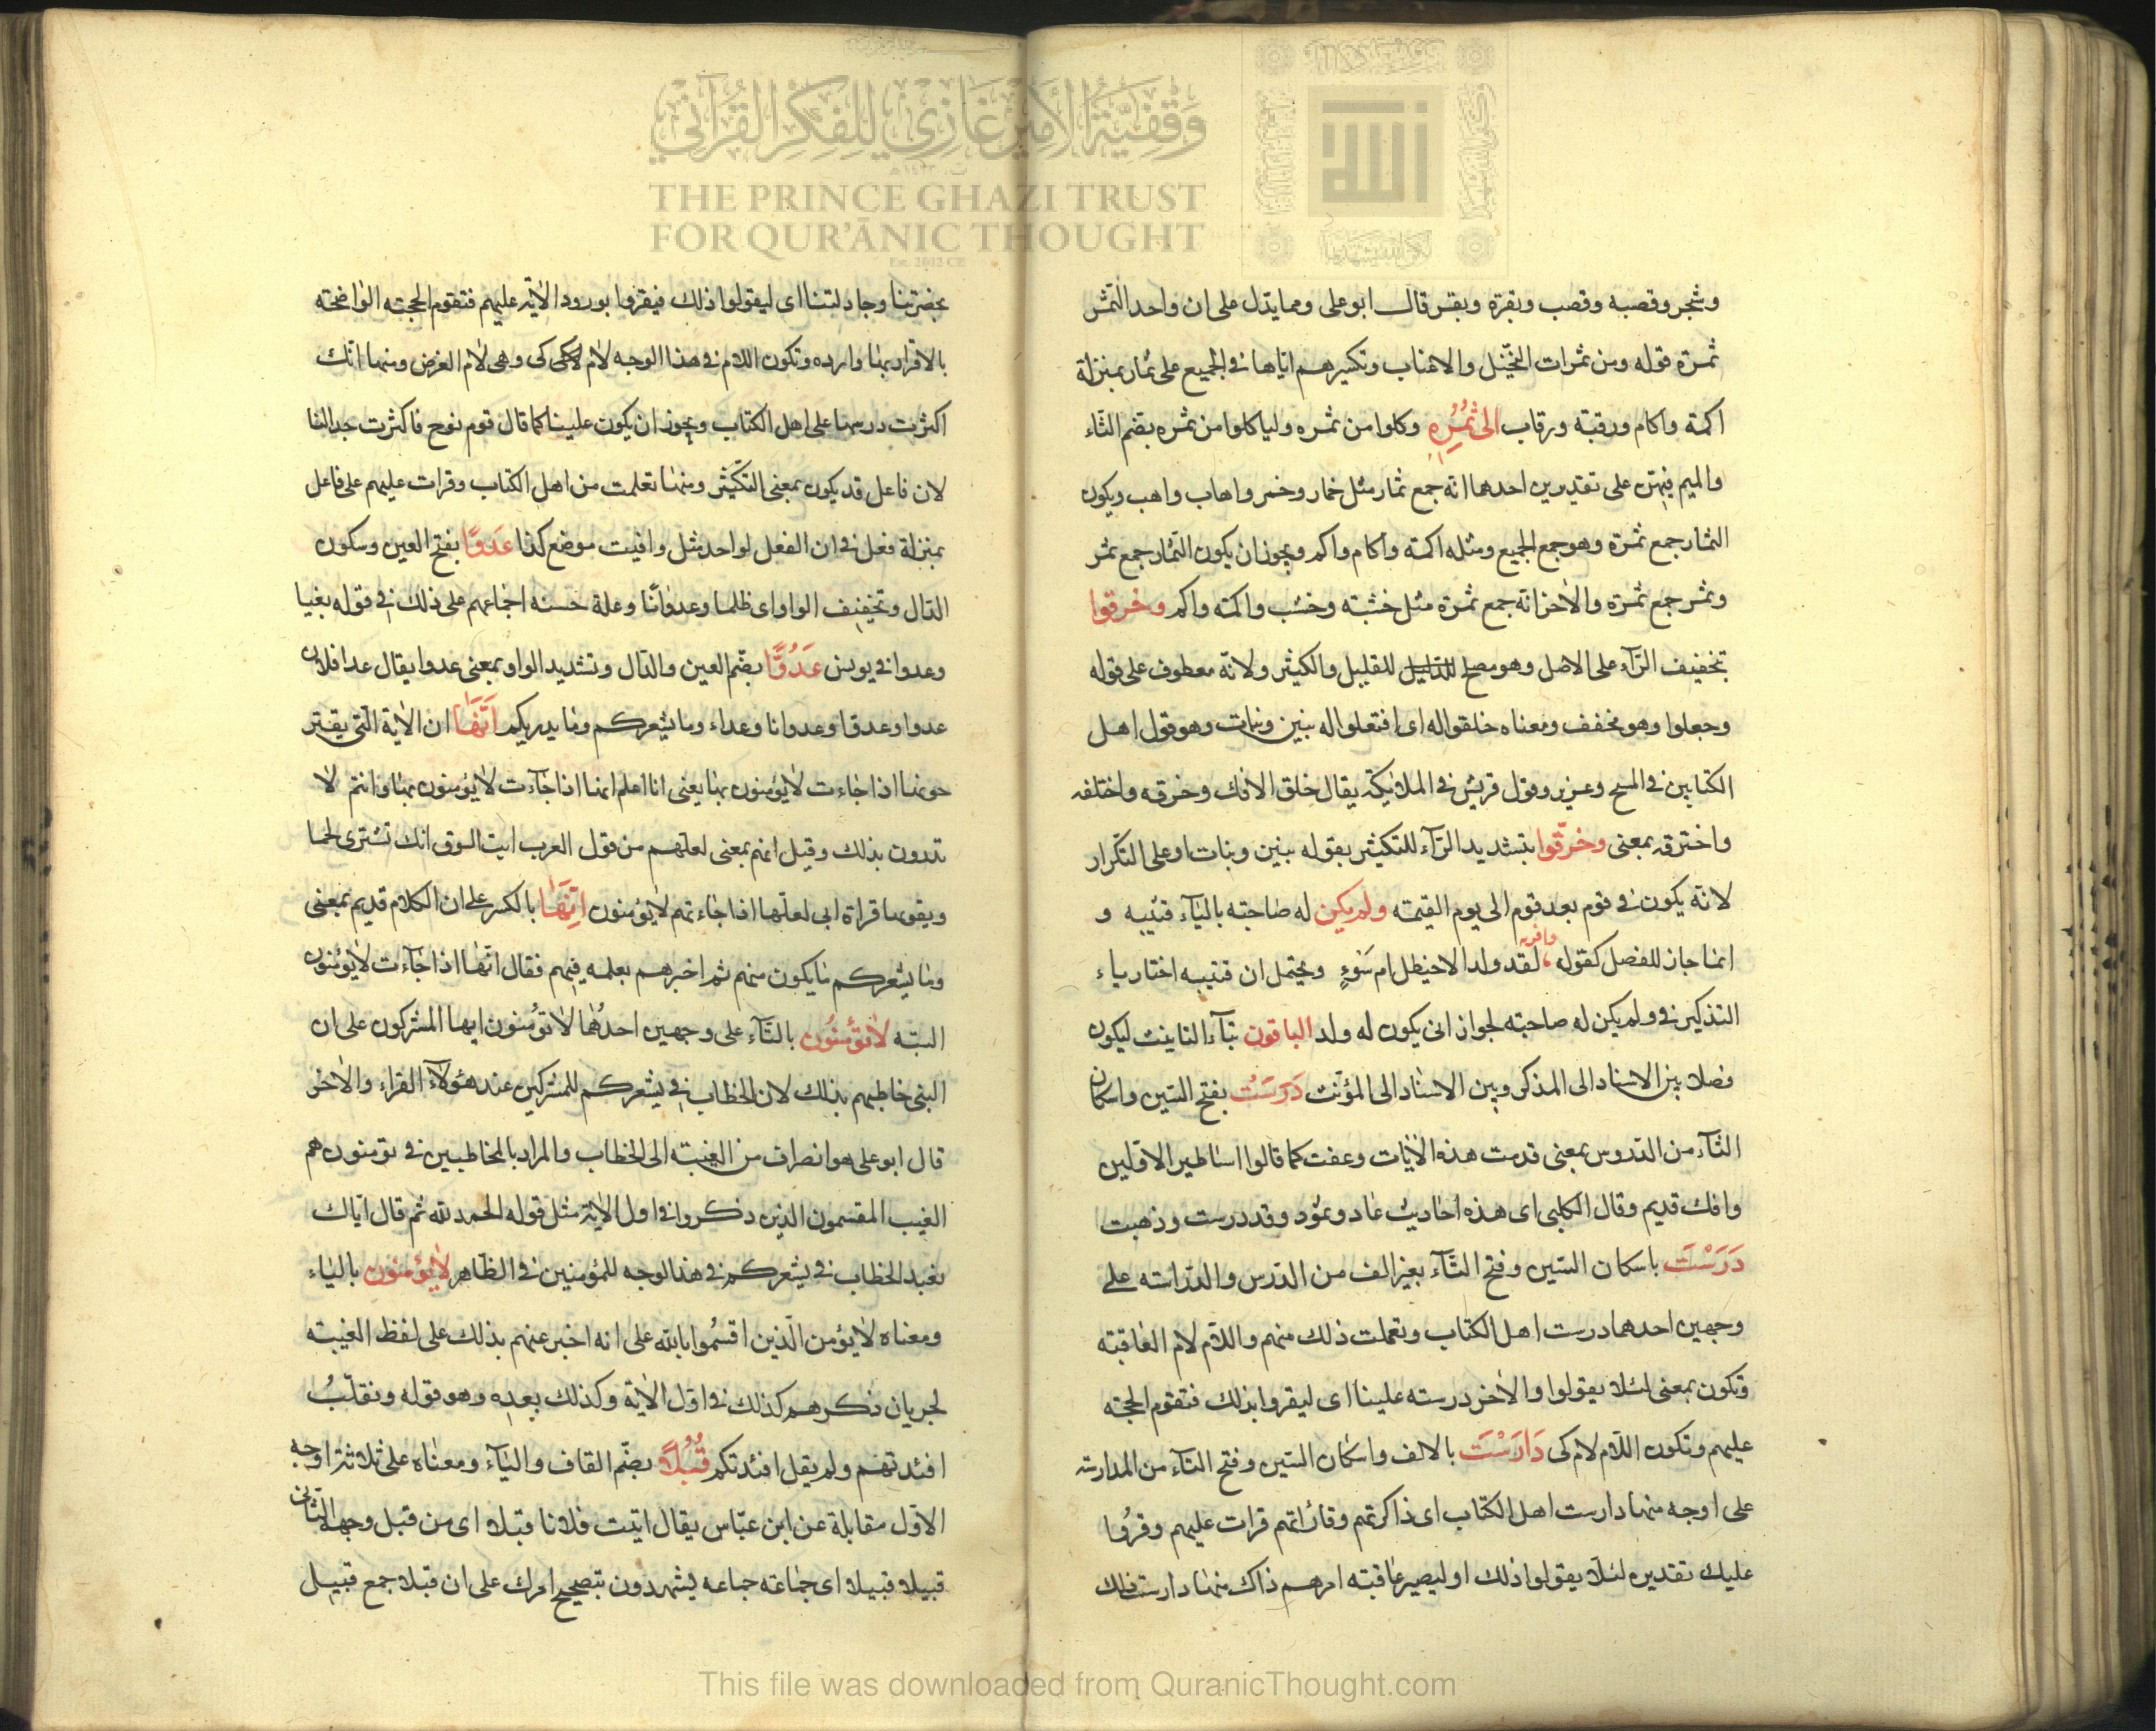 وقفية الأمير غازي للفكر القرآني
THE PRINCE GHAZI TRUST
FOR QUR'ĀNIC THOUGHT
Est. 2012 CE
الله
وشجر وقصبه وقصب وبقرة وبقر قال ابو على ومما يدل على ان واحد الثمر
ثمرة قوله ومن ثمرات النخيل والاعناب وتكسيرهم اياها في الجميع على ثمار بمنزلة
اكمة واكام ورقبة ورقاب الى ثُمُرِهِ وكلوا من ثمره ولياكلوا من ثمره بضم الثاء
والميم فيهن على تقديرين احدهما انه جمع ثمار مثل خمار وخمر واهاب واهب ويكون
الثمار جمع ثمرة وهو جمع الجميع ومثله اكمة واكام واكم ويجوز ان يكون الثمار جمع ثمر
وثمر جمع ثمرة والاخر انه جمع ثمرة مثل خشبته وخشب واكمته واكم وخرقوا
بتخفيف الرآء على الاصل وهو مصلح للقليل والكثير ولانه معطوف على قوله
وجعلوا وهو مخفف ومعناه خلقوا له اى افتعلوا له بنين وبنات وهو قول اهل
الكتابين في المسيح وعزير وقول قريش في الملائيكة يقال خلق الافك وخرقه واختلقه
واخترقه بمعنى وخرّقوا بتشديد الرآء للتكثير بقوله بنين وبنات او على التكرار
لانه يكون في قوم بعد قوم الى يوم القيمته ولم يكن له صاحبته باليآء قتيبه و
انما جاز للفصل كقوله لقد ولد الاخيطل ام سَوءٍ ويحتمل ان قتيبه اختار ياء
التذكير في ولم يكن له صاحبته لجواز انى يكون له ولد الباقون بتآء التانيث ليكون
فصلا بين الاسناد الى المذكر وبين الاسناد الى المؤنث دَرَسَتْ بفتح السين واسكان
التآء من الدروس بمعنى قدمت هذه الآيات وعفت كما قالوا اساطير الاولين
وافك قديم وقال الكلبى اى هذه احاديث عاد وثمود وقد درست وذهبت
دَرَسْتَ باسكان السين وفتح التآء بغير الف من الدرس والدراسته على
وجهين احدهما درست اهل الكتاب وتعلمت ذلك منهم واللام لام العاقبته
وتكون بمعنى لئلا يقولوا والاخر درسته علينا اى ليقروا بذلك فتقوم الحجته
عليهم وتكون اللام لام كى دَارَسْتَ بالالف واسكان السين وفتح التآء من المدارسته
على اوجه منها دارست اهل الكتاب اى ذاكرتهم وقارأتهم قرات عليهم وقرؤا
عليك تقديره لئلا يقولوا ذلك او ليصير عاقبته امرهم ذاك منها دارست ذلك
بحضرتنا وجادلتنا اى ليقولوا ذلك فيقروا بورود الاية عليهم فتقوم الحجته الواضحته
بالاقرار بها وارده وتكون اللام في هذا الوجه لام كى وهى لام الغرض ومنها انك
اكثرت درسها على اهل الكتاب ويجوز ان يكون علينا كما قال قوم نوح فاكثرت جدالنا
لان فاعل قد يكون بمعنى التكثير ومنها تعلمت من اهل الكتاب وقرات عليهم على فاعل
بمنزلة فعل في ان الفعل لواحد مثل وافيت موضع كذا عَدوًا بفتح العين وسكون
الدال وتخفيف الواو اى ظلما وعدوانًا وعلة حسنه اجماعهم على ذلك في قوله بغيا
وعدوا في يونس عَدُوًّا بضم العين والدال وتشديد الواو بمعنى عدوا يقال عدا فلان
عدوا وعدوا وعدوانا وعداء وما يشعركم وما يدريكم اَنَّهَا ان الآية التى يقتر
حونها اذا جاءت لا يؤمنون بها يعنى انا اعلم انها اذا جآءت لا يؤمنون بها وانتم لا
تدرون بذلك وقيل انهم بمعنى لعلهم من قول العرب ايت السوق انك تشترى لحما
ويقويها قراة ابى لعلها اذا جاءتهم لا يؤمنون اِنَّهَا بالكسر على ان الكلام قديم بمعنى
وما يشعركم ما يكون منهم ثم اخبرهم بعلمه فيهم فقال انها اذا جآءت لا يؤمنون
البته لا تؤمنُون بالتآء على وجهين احدُهما لا تؤمنون ايها المشركون على ان
النبى خاطبهم بذلك لان الخطاب في يشعركم للمشركين عند هؤلآء القراء والاخر
قال ابو على هو انصراف من الغيبته الى الخطاب والمراد بالمخاطبين في تؤمنون هم
الغيب المقسمون الذين ذكروا في اول الاية مثل قوله الحمد لله ثم قال اياك
نعبد الخطاب في يشعركم في هذا لوجه للمؤمنين في الظاهر لا يؤمنون بالياء
ومعناه لا يؤمن الذين اقسموا بالله على انه اخبر عنهم بذلك على لفظ الغيبته
لجريان ذكرهم كذلك في اول الاية وكذلك بعده وهو قوله ونقلبُ
افئدتهم ولم يقل افئدتكم قُبُلًا بضم القاف والبآء ومعناه على ثلاثة اوجه
الاول مقابلة عن ابن عباس يقال اتيت فلانا قبلا اى من قبل وجهه الثانى
قبيلا قبيلا اى جماعته جماعه يشهدون بتصحيح امرك على ان قبلا جمع قبيل
This file was downloaded from QuranicThought.com